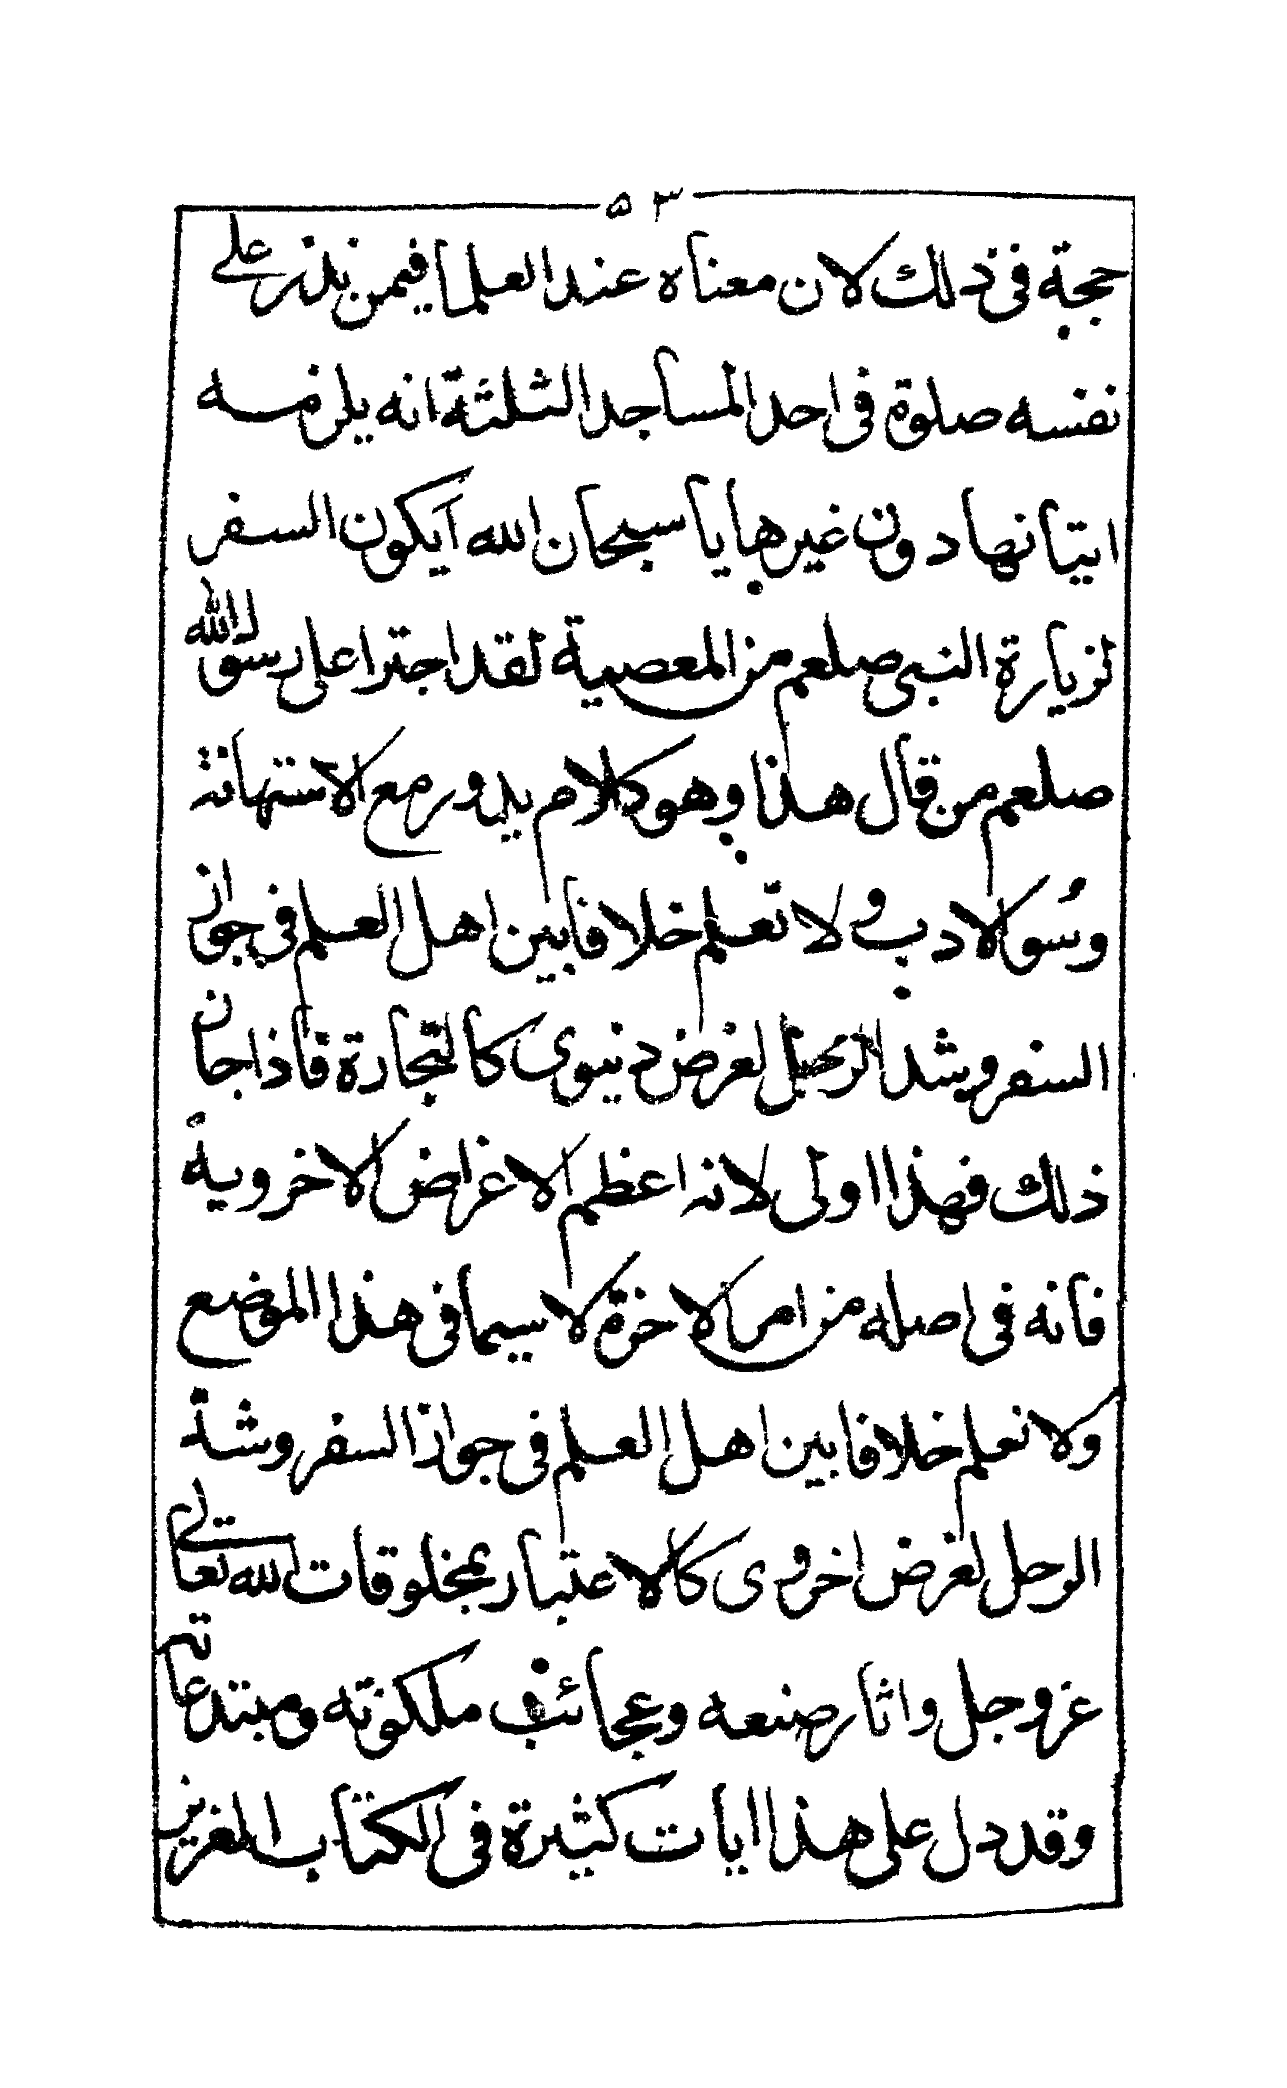 ٥٣
حجة فى ذلك لان معناه عند العلما فيمن نذر على
نفسه صلوة فى احد المساجد الثلثة انه يلزمه
اتيانها دون غيرها يا سبحان الله ايكون السفر
لزيارة النبى صلعم من المعصية لقد اجترا على رسول الله
صلعم من قال هذا وهو كلام يدور مع الاستهانة
وسُو الادب ولا تعلم خلافا بين اهل العلم فى جواز
السفر وشد الرحيل لغرض دنيوى كالتجارة فاذا جاز
ذلك فهذا اولى لانه اعظم الاغراض الاخروية
فانه فى اصله من امر الاخرة لا سيما فى هذا الموضع
ولا نعلم خلافا بين اهل العلم فى جواز السفر وشد
الرحل لغرض اخروى كالاعتبار بمخلوقات الله تعالى
عز وجل واثار صنعه وعجائب ملكوته ومبتدعاته
وقد دل على هذا ايات كثيرة فى الكتاب العزيز